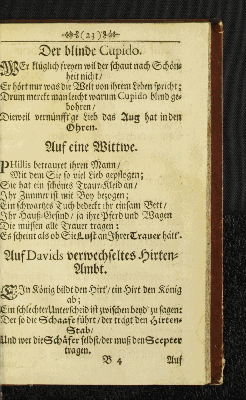 (23)
Der blinde Cupido.
WEr klüglich freyen wil der schaut nach Schön-
heit nicht/
Er hört nur was die Welt von ihrem Leben spricht;
Drum merckt man leicht warum Cupido blind ge-
bohren/
Dieweil vernünfft'ge Lieb das Aug hat in den
Ohren.
Auf eine Wittwe.
PHillis betrauret ihren Mann/
Mit dem Sie so viel Lieb gepflogen;
Sie hat ein schönes Traur-Kleid an/
Ihr Zimmer ist mit Boy bezogen;
Ein schwartzes Tuch bedeckt ihr einsam Bett/
Ihr Hauß-Gesind/ ja ihre Pferd und Wagen
Die müssen alle Traur tragen:
Es scheint als ob Sie Lust an Ihrer Trauer hätt'.
Auf Davids verwechseltes Hirten-
Ambt.
EIn König bildt den Hirt/ ein Hirt den König
ab;
Ein schlechter Unterschrid ist zwischen beyd' zu sagen:
Der so die Schaafe führt/ der trägt den Hirten-
Stab/
Und wer die Schäfer selbst/ der muß den Scepter
tragen.
B 4 Auf